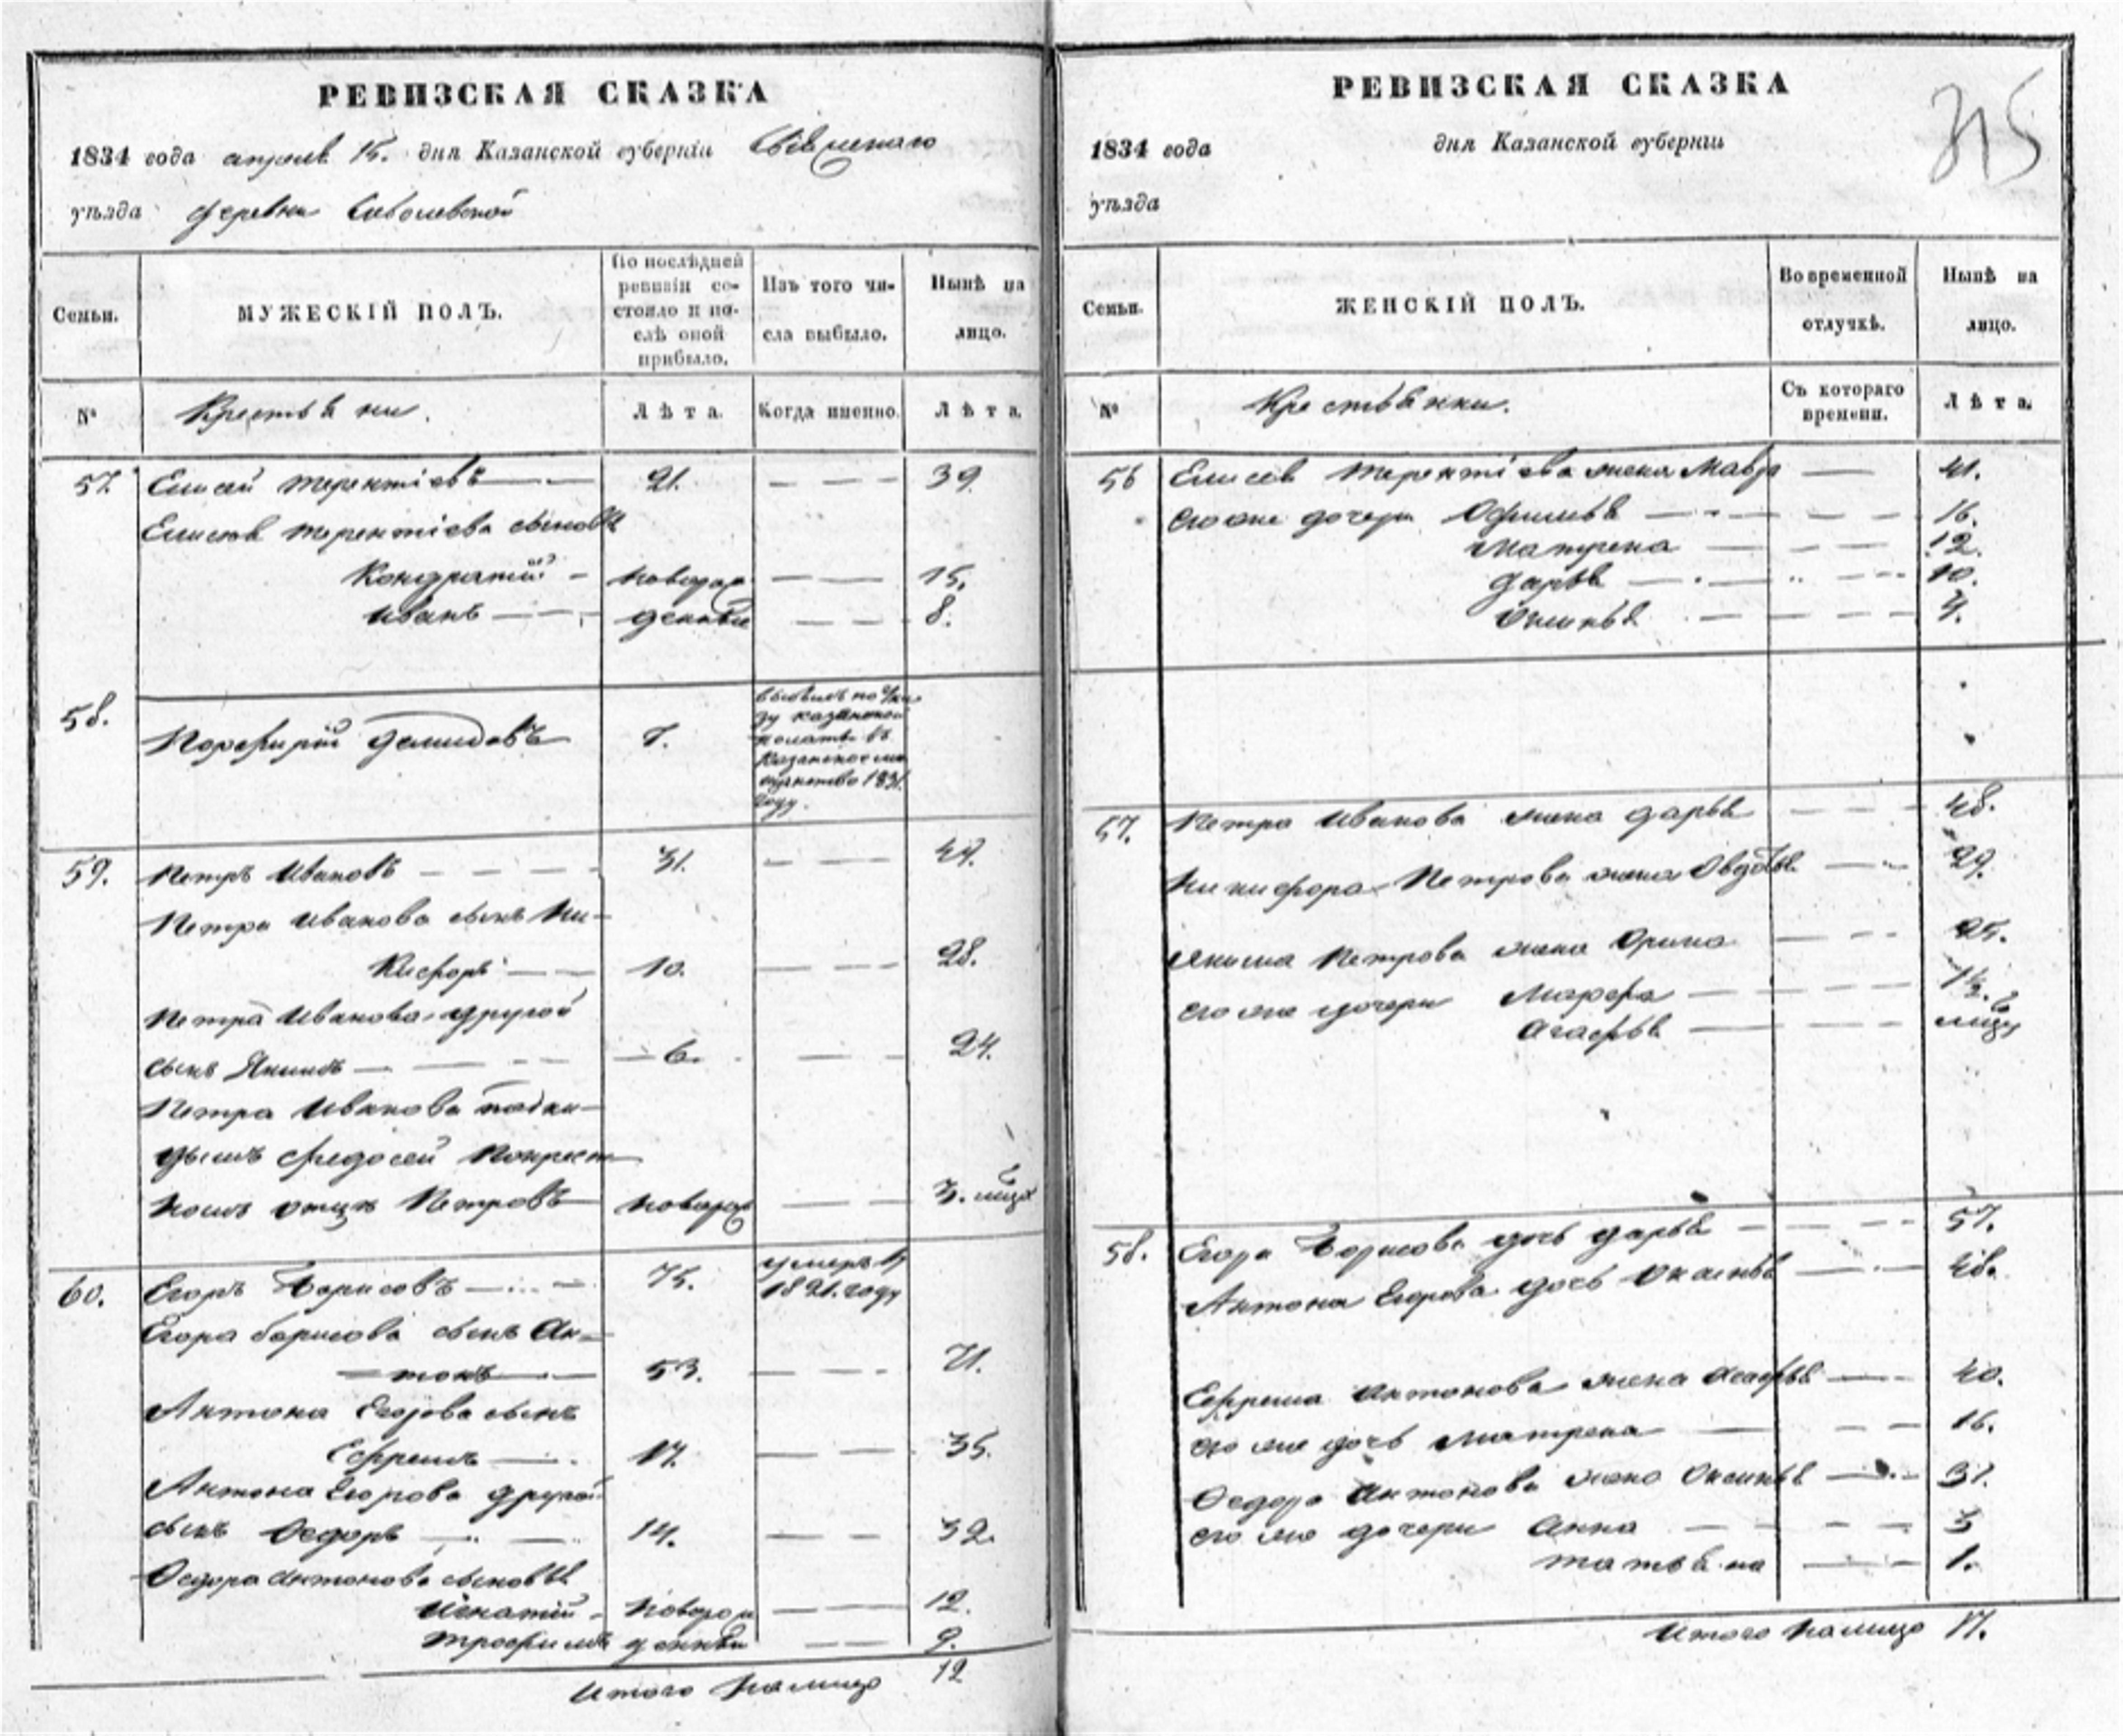 РЕВИЗСКАЯ СКАЗКА
1834 года апреля 15. дня Казанской губернии
уѣзда деревни
Семьи.
МУЖЕСКІЙ ПОЛЪ.
По послѣдней ревизіи состояло и послѣ оной прибыло.
Изъ того числа выбыло.
Нынѣ на лицо.
№
Крестьяни.
Лѣта.
Когда именно.
Лѣта.
57. Елисей Терентіевъ 21. 39.
Елисея Терентіева сыновья
Кондратій новорож 15.
Иванъ денные 8.
58.
Порфирій Демидовъ 7.
году.
59. Петръ Ивановъ 31. 49.
Петра Иванова сынъ Ни-
кифоръ 10. 28.
Петра Иванова другой
сынъ Якимъ 6. 24.
Петра Иванова подки-
дышъ Федосей по крест
номъ отцѣ Петровъ новорож 3.
60. Егоръ Борисовъ 75. умеръ въ 1821. году
Егора Борисова сынъ Ан-
тонъ 53. 71.
Антона Егорова сынъ
Ефремъ 17. 35.
Антона Егорова другой
сынъ Ѳедоръ 14. 32.
Ѳедора Антонова сыновья
Игнатій новорож 12.
Трофимъ денные 9.
Итого на лицо 12
РЕВИЗСКАЯ СКАЗКА
315
1834 года дня Казанской губерніи
уѣзда
Семьи.
ЖЕНСКІЙ ПОЛЪ.
Во временной отлучкѣ.
Нынѣ на лицо.
№
Крестьянки.
Съ котораго времени.
Лѣта.
56 Елисея Терентіева жена Мавра 41.
его же дочери Офимья 16.
Матрена 12.
Дарья 10.
Оксинья
57. Петра Иванова жена Дарья 48.
Никифора Петрова жена Овдотья 29.
Якима Петрова жена Орина 25.
его же дочери Марфа 1½.
Агафья
58. Егора Борисова дочь Дарья 57.
Антона Егорова дочь Оксинья 48.
Ефрема Антонова жена Агафья 40.
его же дочь Матрена 16.
Ѳедора Антонова жена Оксинья 31.
его же дочери Анна 3
Татьяна 1.
Итого на лицо 17.